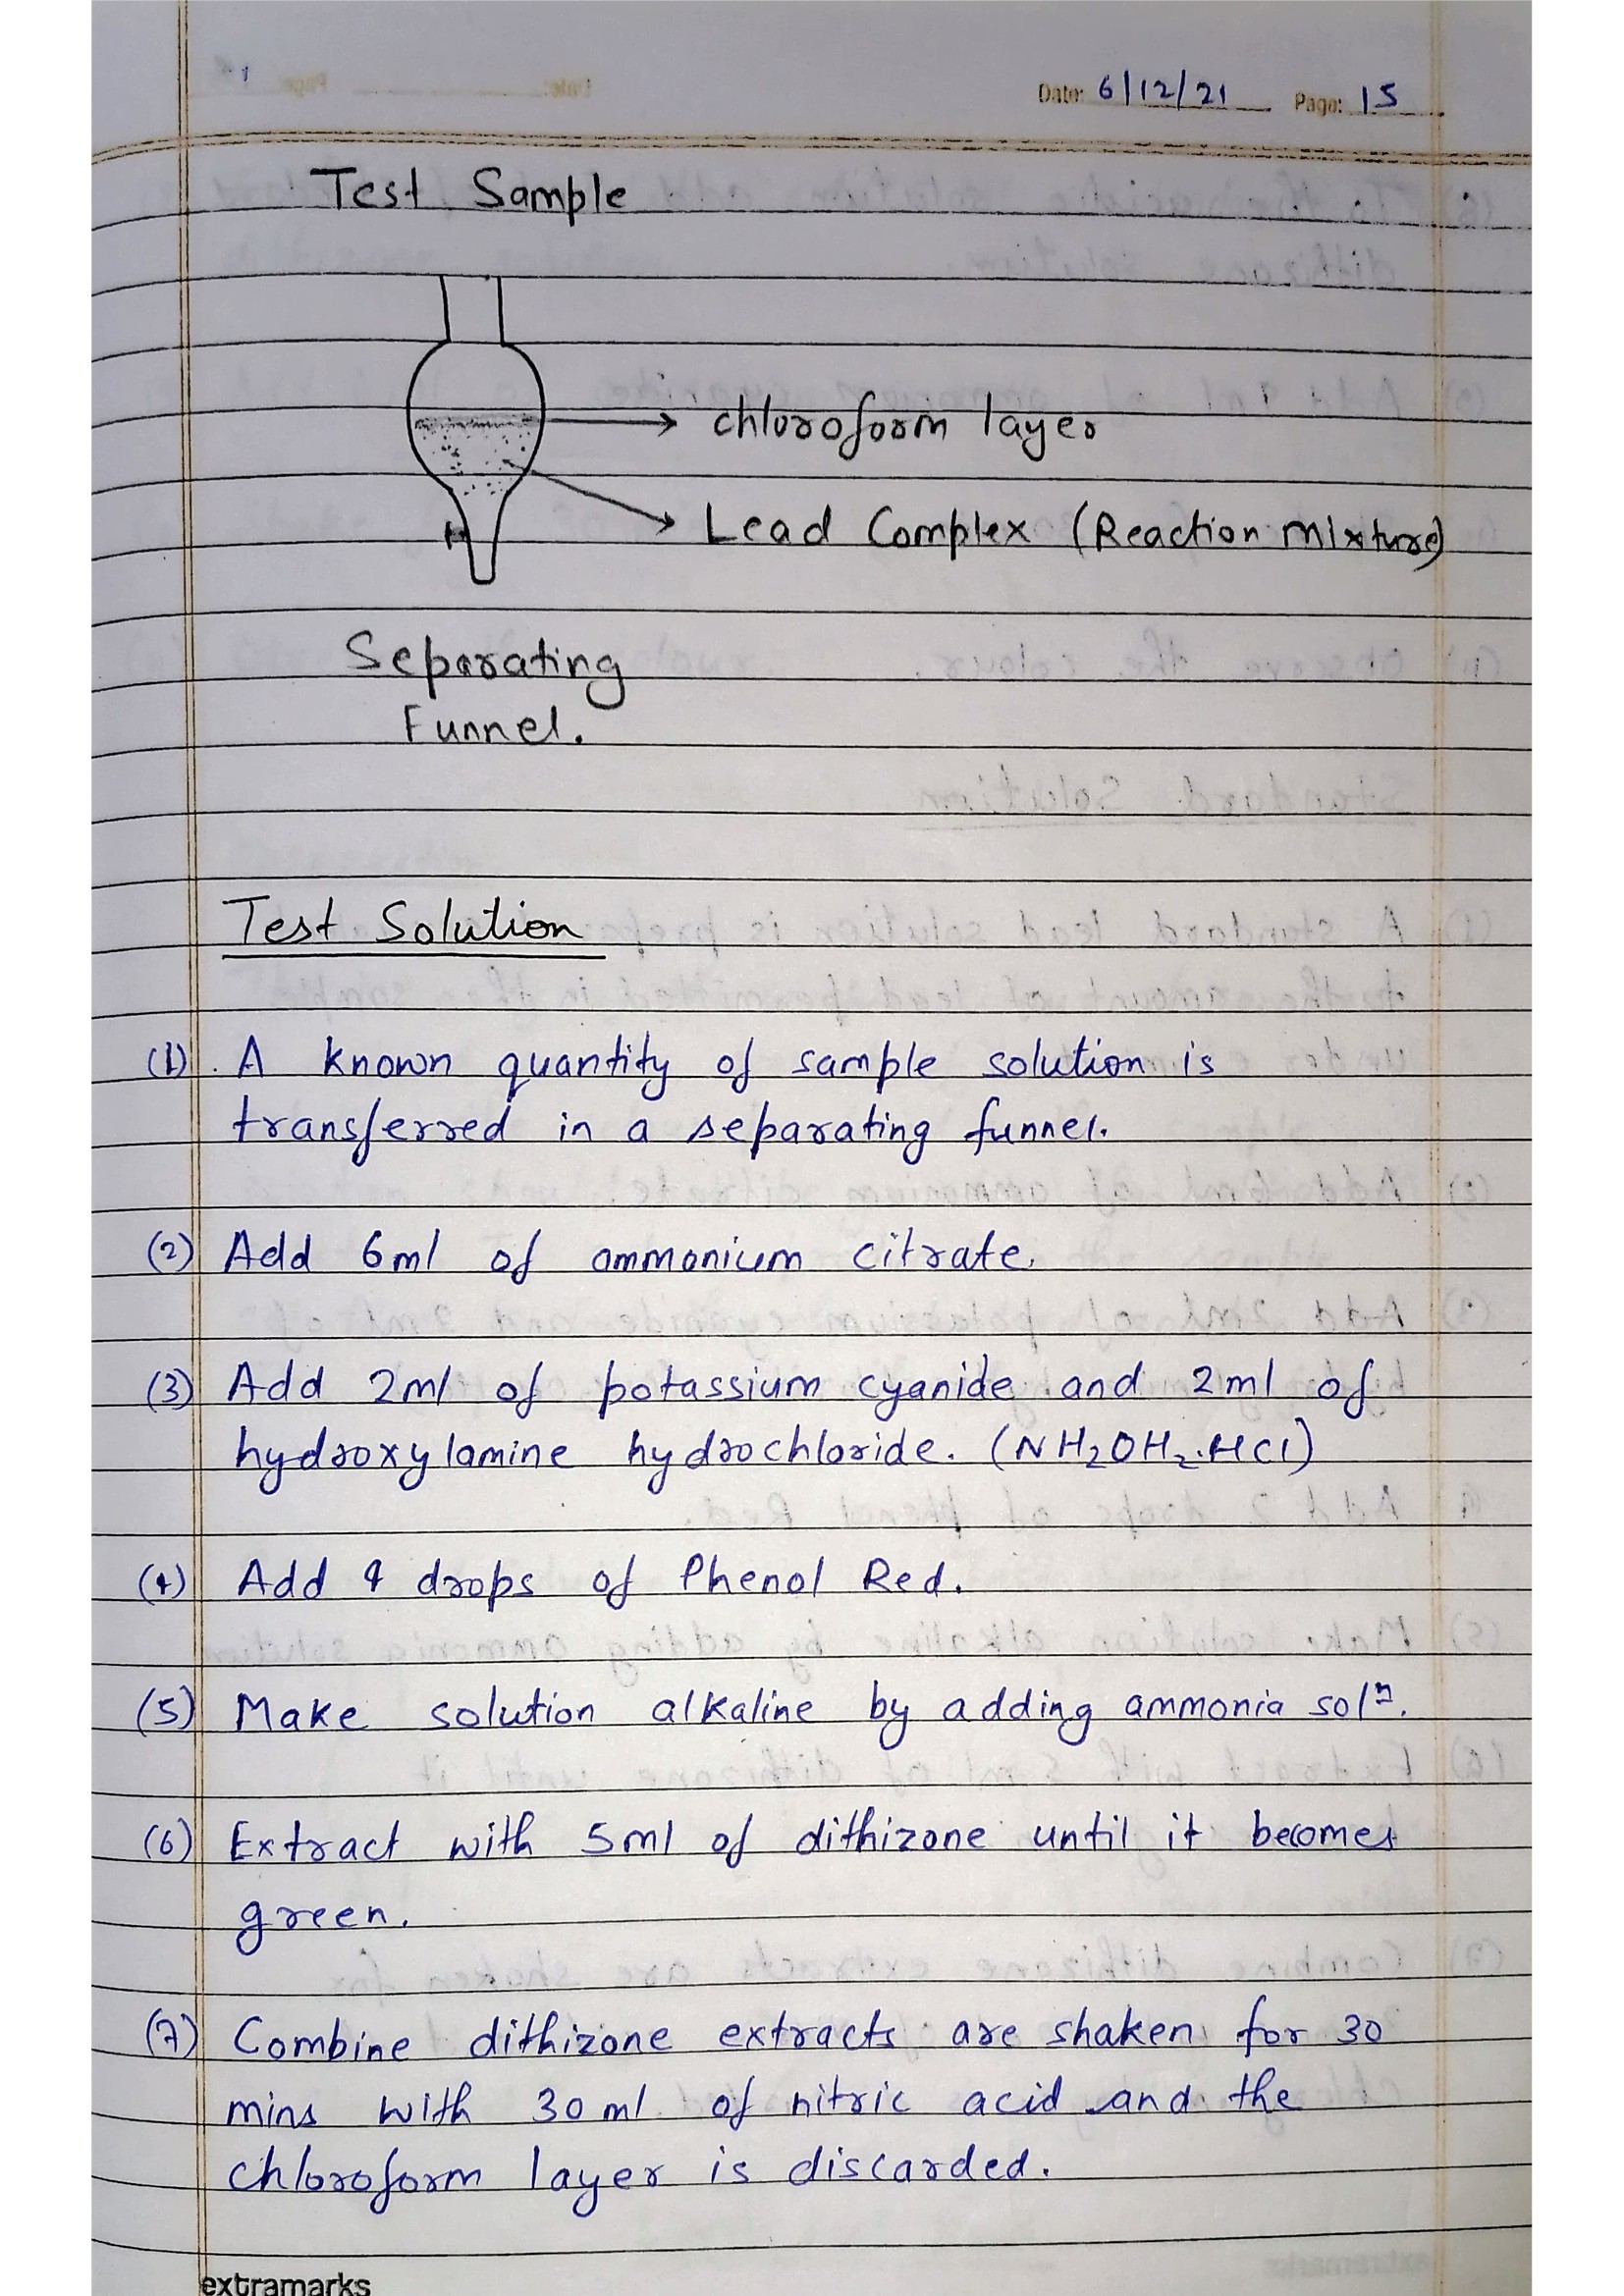 Date: 6/12/21 Page: 15
Test Sample
chloroform layer
Lead Complex (Reaction Mixture)
Separating
Funnel.
Test Solution
(1) A known quantity of sample solution is
transferred in a separating funnel.
(2) Add 6ml of ammonium citrate.
(3) Add 2ml of potassium cyanide and 2ml of
hydroxylamine hydrochloride. (NH₂OH₂.HCl)
(4) Add 4 drops of Phenol Red.
(5) Make solution alkaline by adding ammonia solⁿ.
(6) Extract with 5ml of dithizone until it becomes
green.
(7) Combine dithizone extracts are shaken for 30
mins with 30 ml of nitric acid and the
chloroform layer is discarded.
extramarks